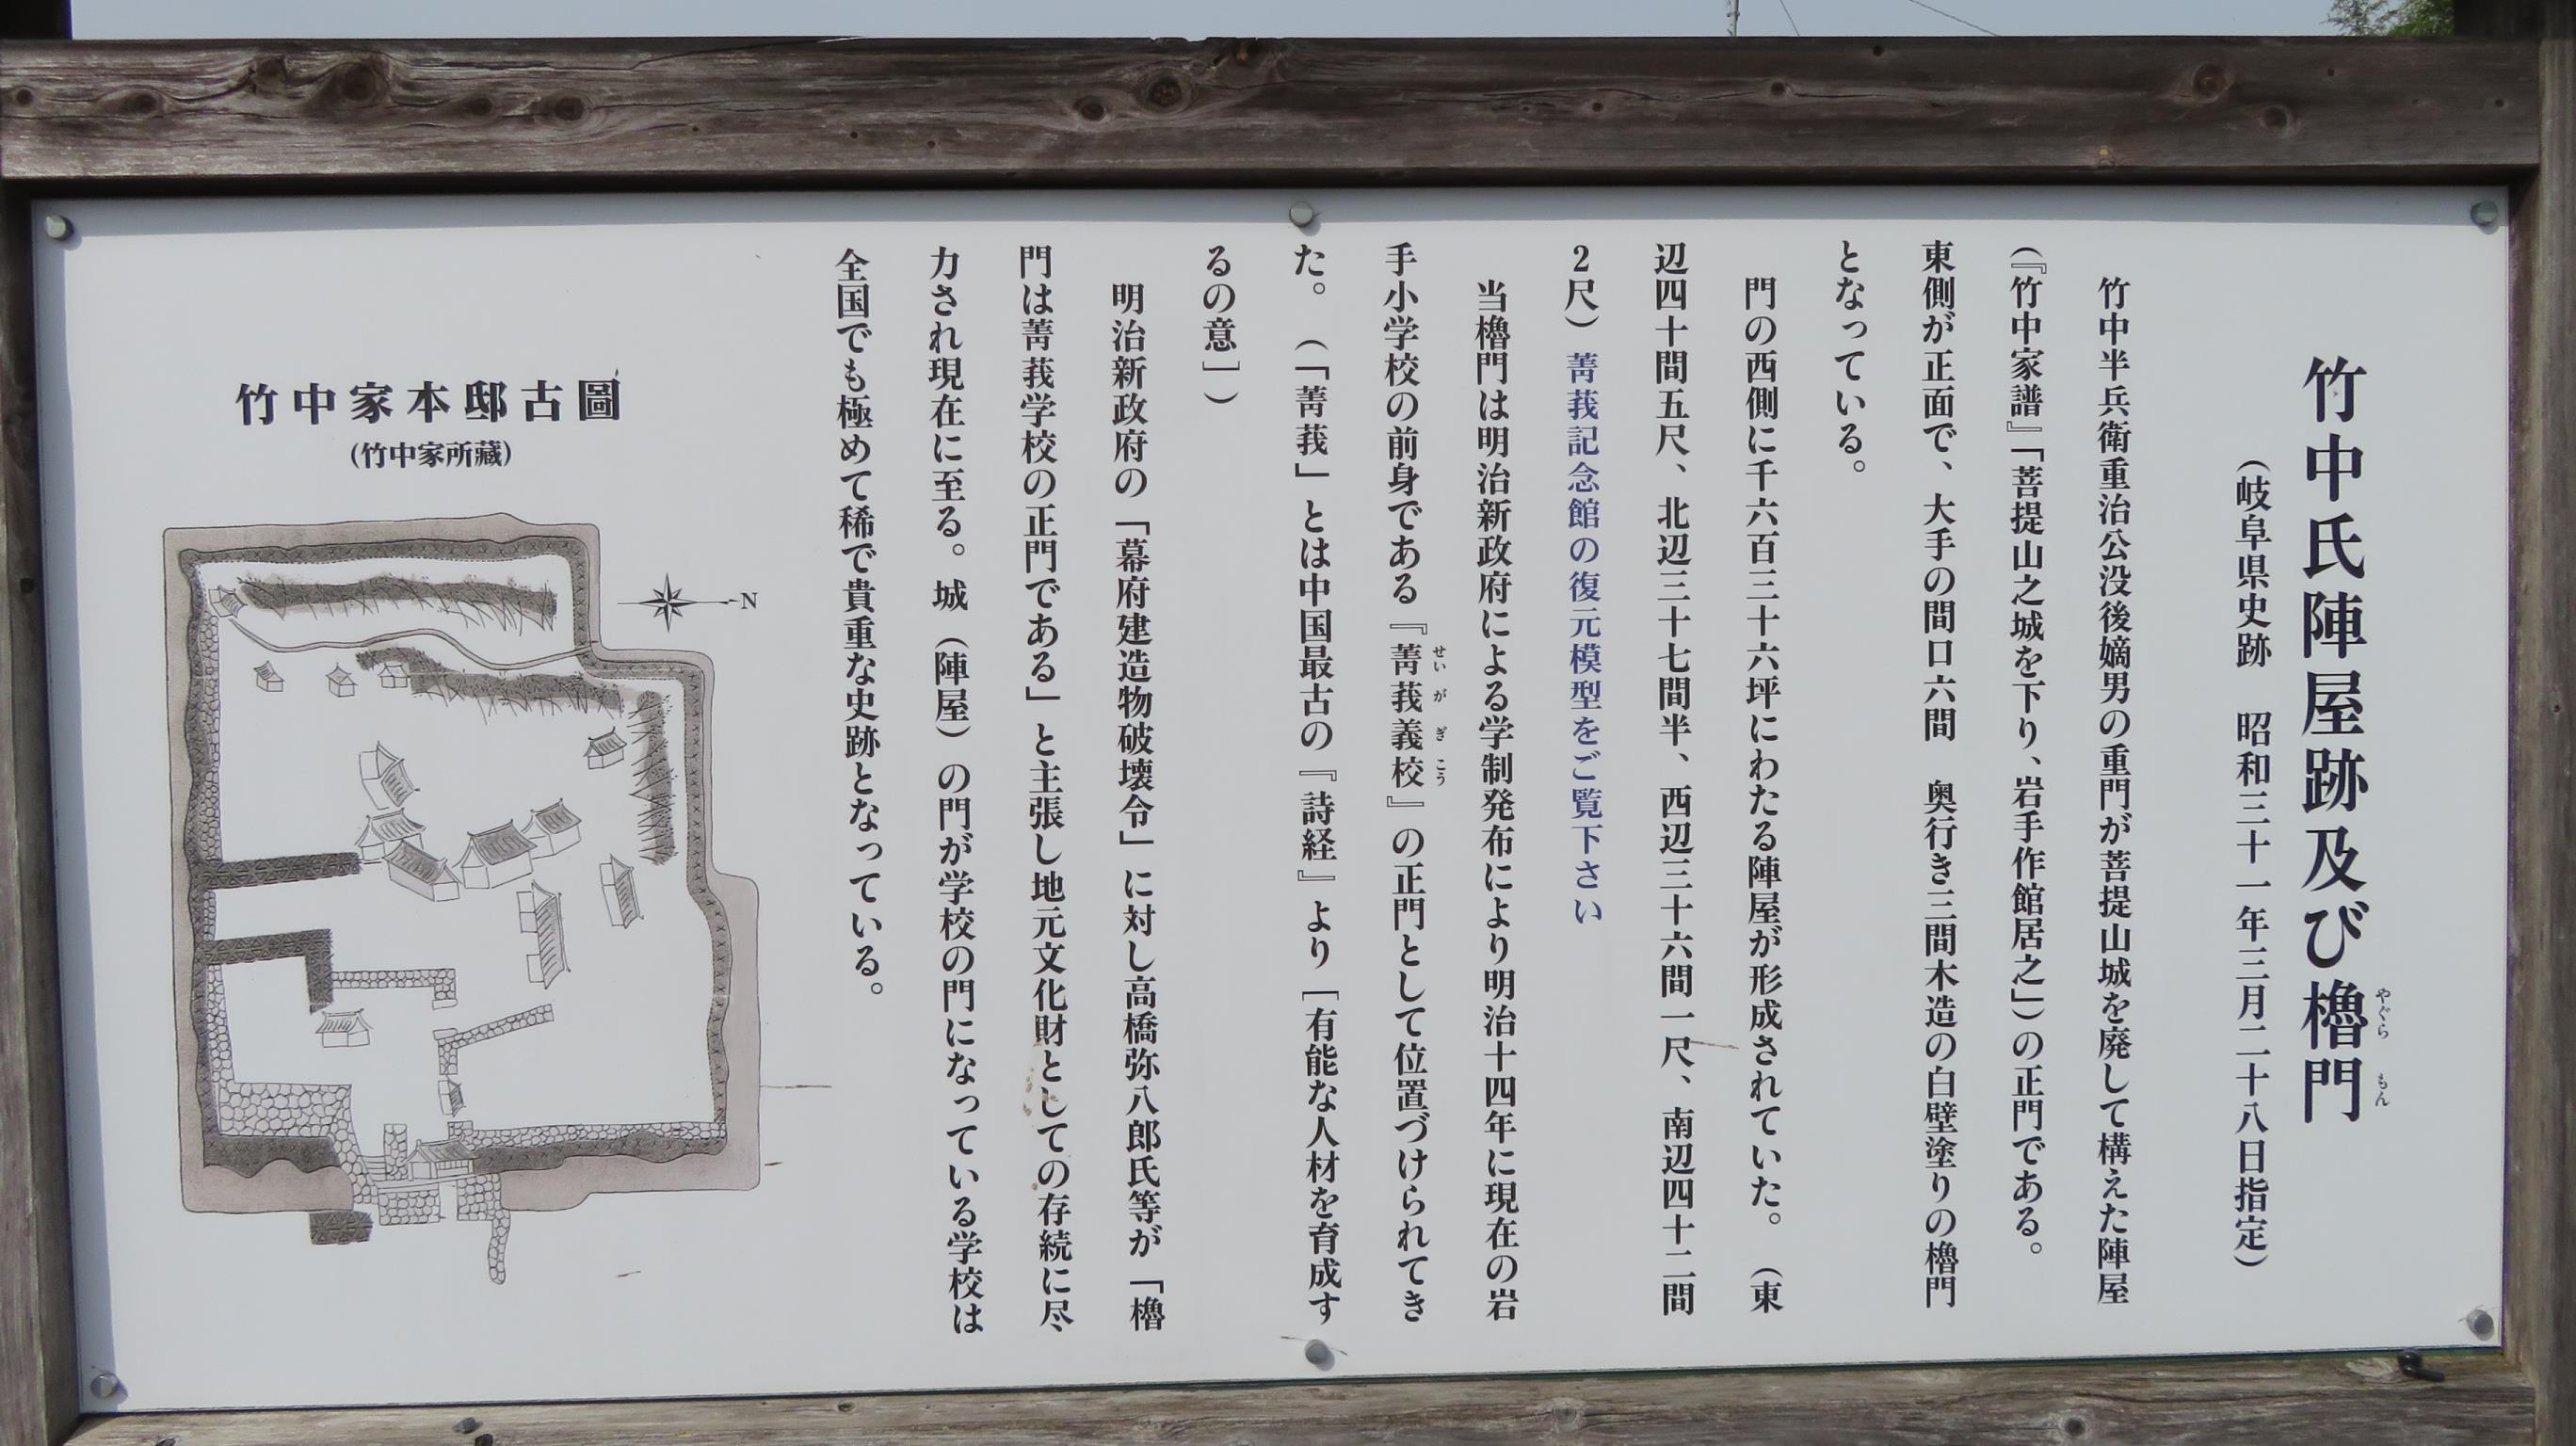 竹中氏陣屋跡及び櫓門
やぐら もん
(岐阜県史跡 昭和三十一年三月二十八日指定)
竹中半兵衛重治公没後嫡男の重門が菩提山城を廃して構えた陣屋
(『竹中家譜』「菩提山之城を下り、岩手作館居之」)の正門である。
東側が正面で、大手の間口六間 奥行き三間木造の白壁塗りの櫓門
となっている。
門の西側に千六百三十六坪にわたる陣屋が形成されていた。(東
辺四十間五尺、北辺三十七間半、西辺三十六間一尺、南辺四十二間
2尺)菁莪記念館の復元模型をご覧下さい
当櫓門は明治新政府による学制発布により明治十四年に現在の岩
手小学校の前身である『菁莪義校』の正門として位置づけられてき
せい が ぎ こう
た。(「菁莪」とは中国最古の『詩経』より[有能な人材を育成す
るの意])
明治新政府の「幕府建造物破壊令」に対し高橋弥八郎氏等が「櫓
門は菁莪学校の正門である」と主張し地元文化財としての存続に尽
力され現在に至る。城(陣屋)の門が学校の門になっている学校は
全国でも極めて稀で貴重な史跡となっている。
竹中家本邸古圖
(竹中家所藏)
N